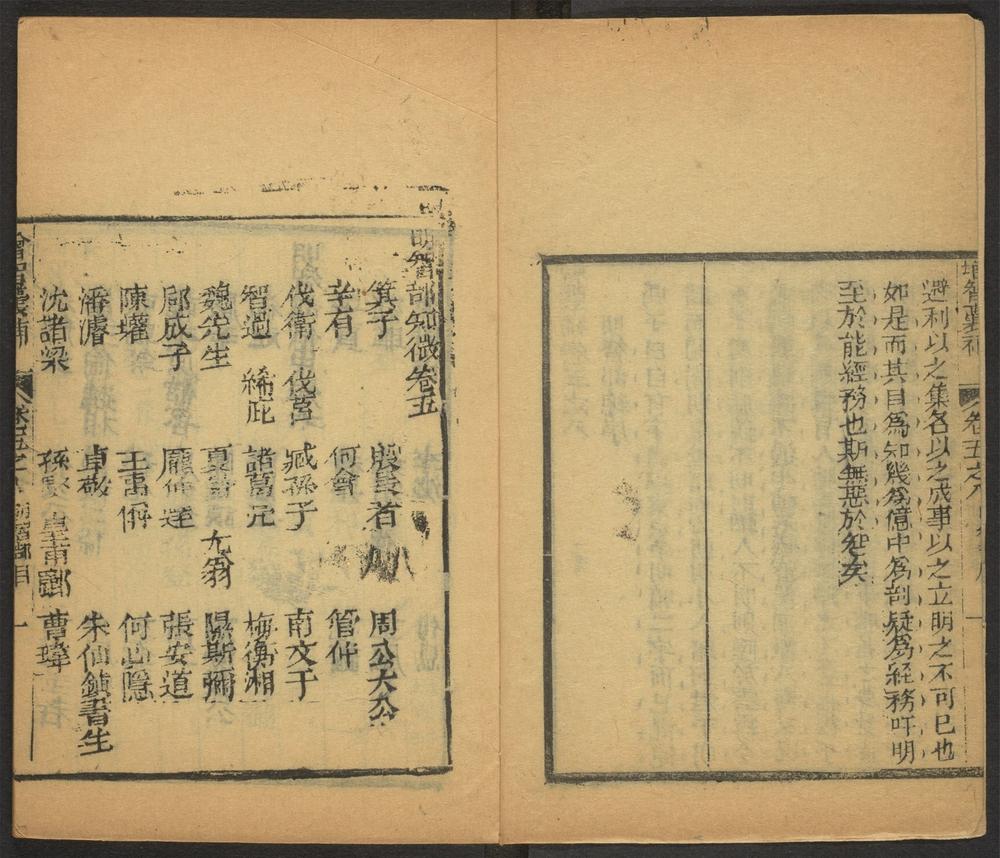 增智囊補 卷五之
避利以之集各以之成事以之立明之不可巳也
如是而其目爲知幾爲億中爲剖疑爲経務吁明
至於能經務也斯無惡於智矣
明智部知微卷五
箕子 殷長者 周公大公
辛有 何曾 管仲
伐衛伐莒 臧孫子 南文子
智過 絺疵 諸葛亮 梅衡湘
魏先生 夏翁 尤翁 隰斯彌
郈成子 龐仲達 張安道
陳瓘 王禹偁 何心隱
潘濬 卓敬 朱仙鎮書生
沈諸梁 孫堅 皇甫酈 曹瑋
增智囊補 卷五之 明智部目 一